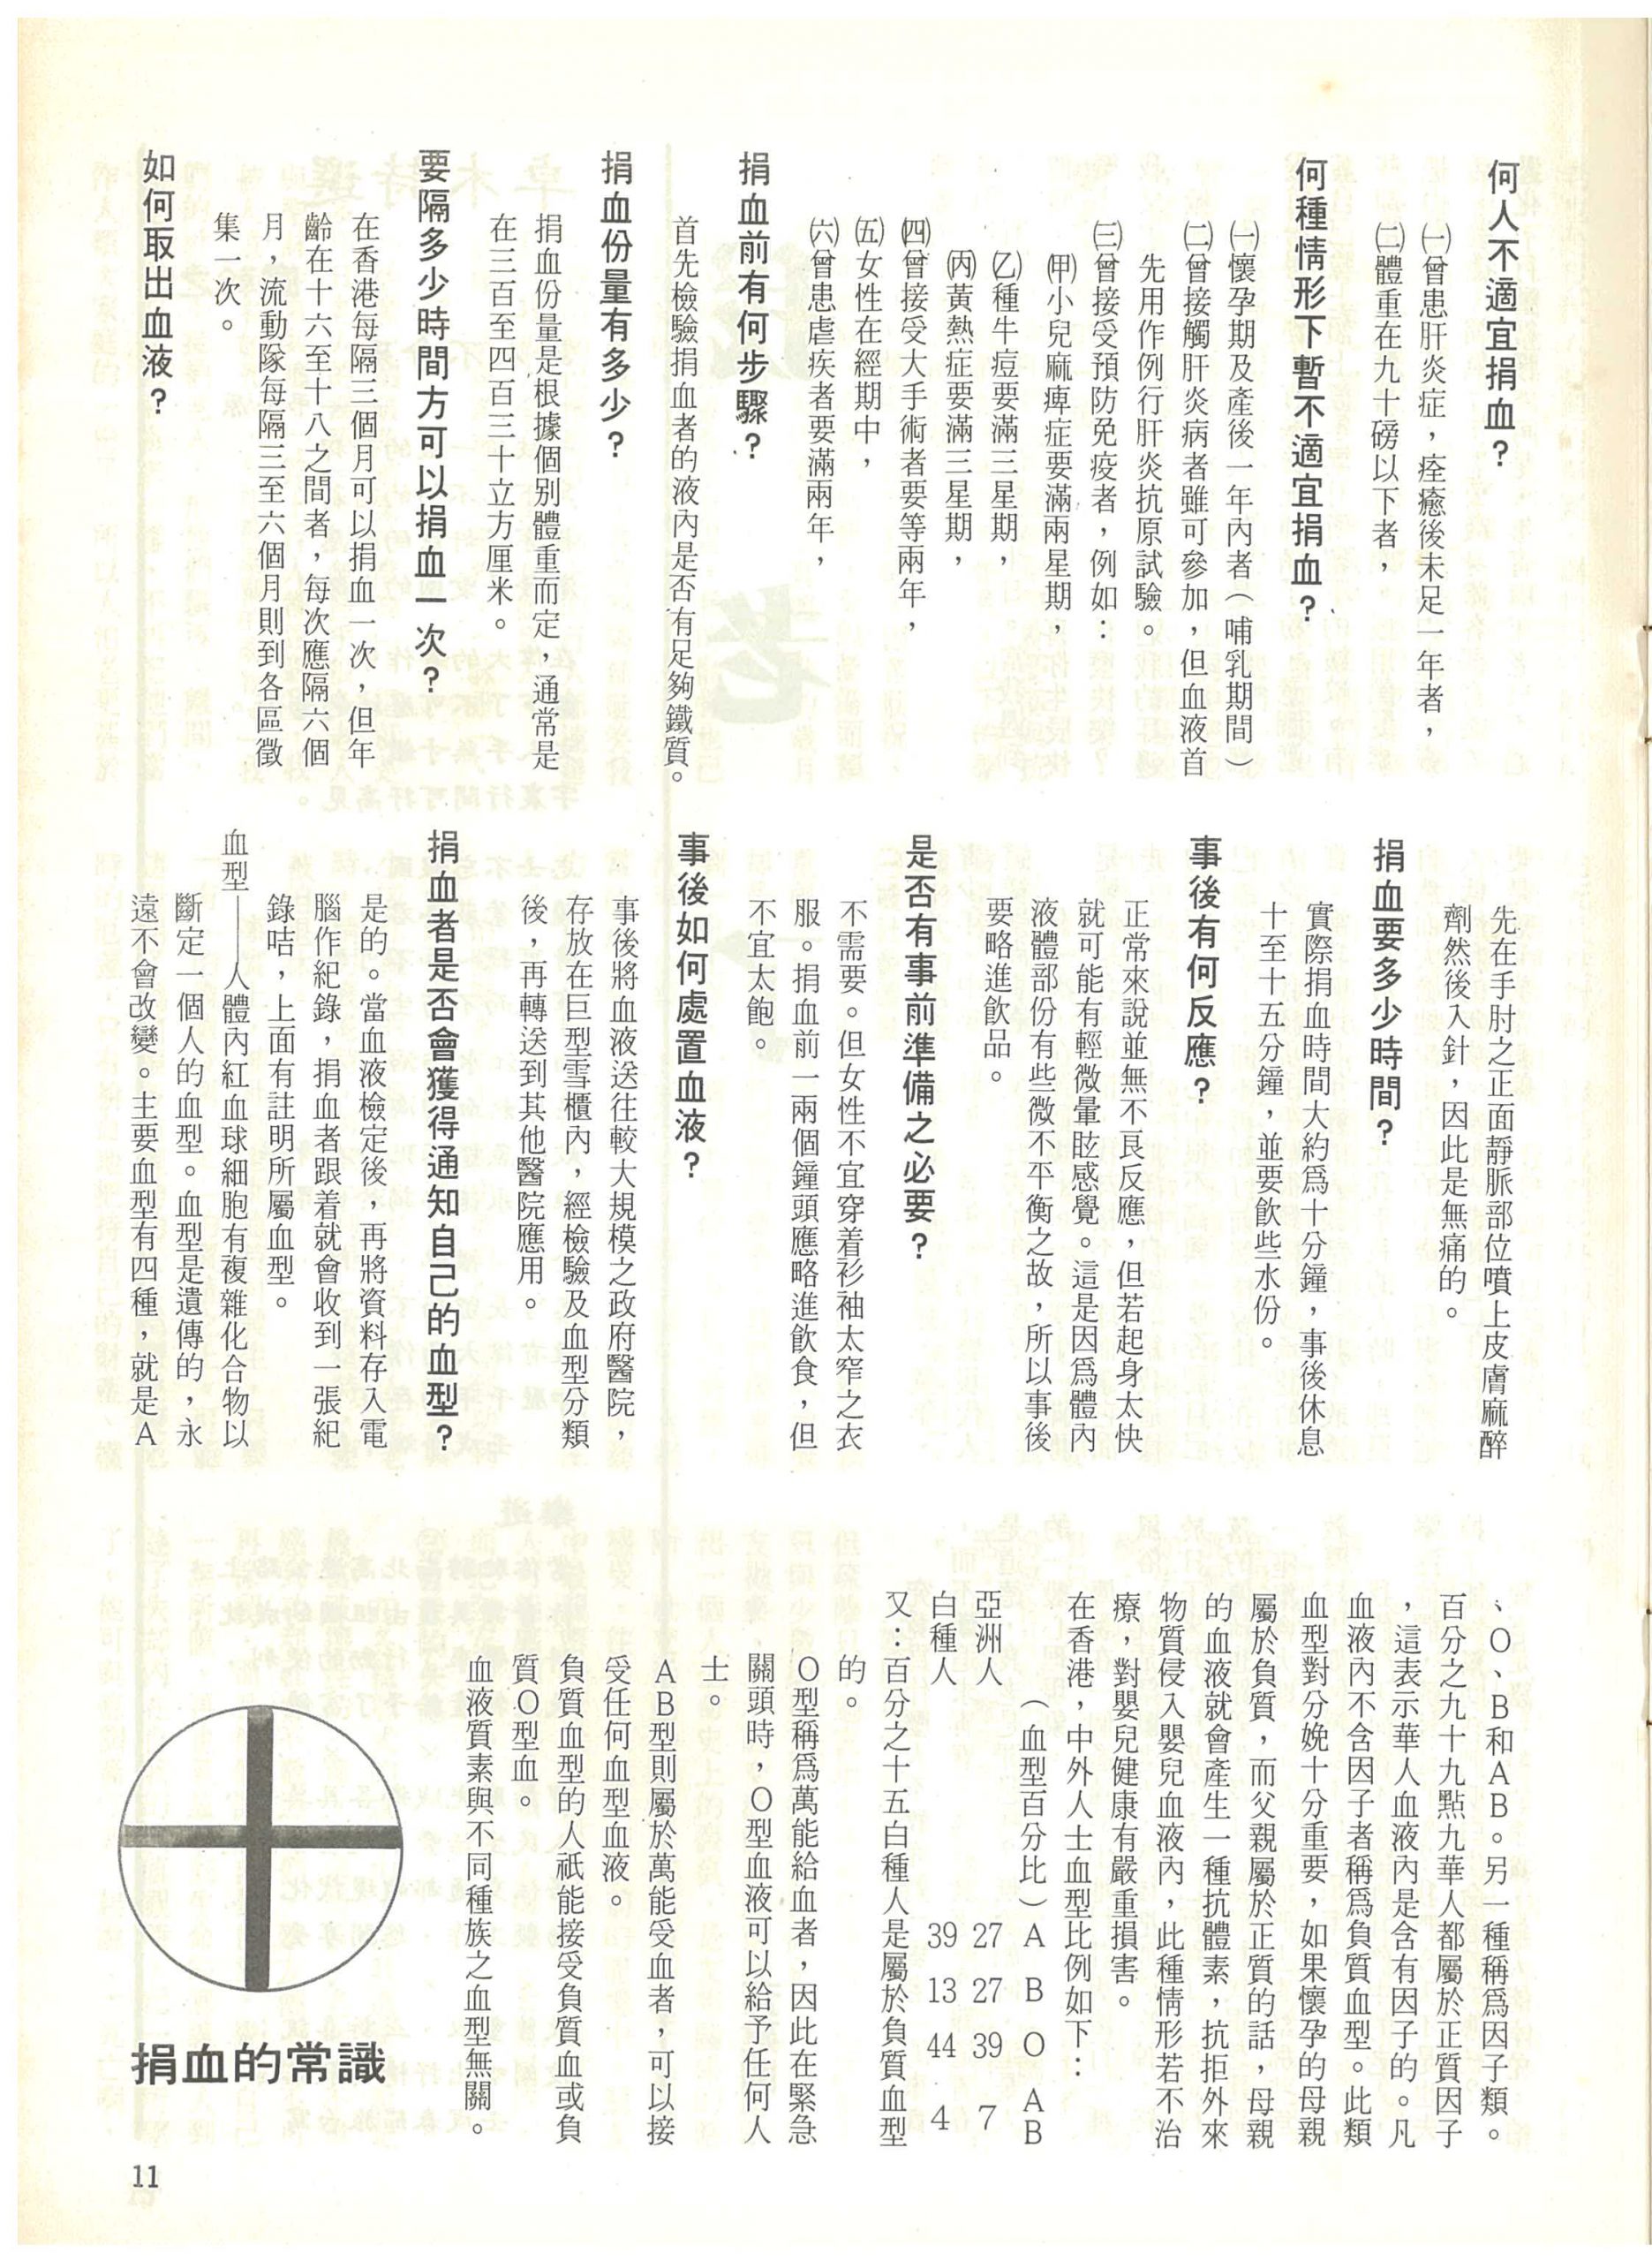 何人不適宜捐血？
㈠曾患肝炎症，痊癒後未足一年者，
㈡體重在九十磅以下者，
何種情形下暫不適宜捐血？
㈠懷孕期及產後一年內者（哺乳期間）
㈡曾接觸肝炎病者雖可參加，但血液首
先用作例行肝炎抗原試驗。
㈢曾接受預防免疫者，例如：
㈙小兒麻痺症要滿兩星期，
㈚種牛痘要滿三星期，
㈛黃熱症要滿三星期，
㈣曾接受大手術者要等兩年，
㈤女性在經期中，
㈥曾患虐疾者要滿兩年，
捐血前有何步驟？
首先檢驗捐血者的液內是否有足夠鐵質。
捐血份量有多少？
捐血份量是根據個别體重而定，通常是
在三百至四百三十立方厘米。
要隔多少時間方可以捐血一次？
在香港每隔三個月可以捐血一次，但年
齡在十六至十八之間者，每次應隔六個
月，流動隊每隔三至六個月則到各區徵
集一次。
如何取出血液？
先在手肘之正面靜脈部位噴上皮膚麻醉
劑然後入針，因此是無痛的。
捐血要多少時間？
實際捐血時間大約爲十分鐘，事後休息
十至十五分鐘，並要飲些水份。
事後有何反應？
正常來說並無不良反應，但若起身太快
就可能有輕微暈眩感覺。這是因爲體內
液體部份有些微不平衡之故，所以事後
要略進飲品。
是否有事前準備之必要？
不需要。但女性不宜穿着衫袖太窄之衣
服。捐血前一兩個鐘頭應略進飲食，但
不宜太飽。
事後如何處置血液？
事後將血液送往較大規模之政府醫院，
存放在巨型雪櫃內，經檢驗及血型分類
後，再轉送到其他醫院應用。
捐血者是否會獲得通知自己的血型？
是的。當血液檢定後，再將資料存入電
腦作紀錄，捐血者跟着就會收到一張紀
錄咭，上面有註明所屬血型。
血型——人體內紅血球細胞有複雜化合物以
斷定一個人的血型。血型是遺傳的，永
遠不會改變。主要血型有四種，就是Ａ
、Ｏ、Ｂ和ＡＢ。另一種稱爲因子類。
百分之九十九點九華人都屬於正質因子
，這表示華人血液內是含有因子的。凡
血液內不含因子者稱爲負質血型。此類
血型對分娩十分重要，如果懷孕的母親
屬於負質，而父親屬於正質的話，母親
的血液就會產生一種抗體素，抗拒外來
物質侵入嬰兒血液內，此種情形若不治
療，對嬰兒健康有嚴重損害。
在香港，中外人士血型比例如下：
（血型百分比）Ａ Ｂ Ｏ ＡＢ
亞洲人 27 27 39 7
白種人 39 13 44 4
又：百分之十五白種人是屬於負質血型
的。
Ｏ型稱爲萬能給血者，因此在緊急
關頭時，Ｏ型血液可以給予任何人
士。
ＡＢ型則屬於萬能受血者，可以接
受任何血型血液。
負質血型的人祇能接受負質血或負
質Ｏ型血。
血液質素與不同種族之血型無關。
捐血的常識
11